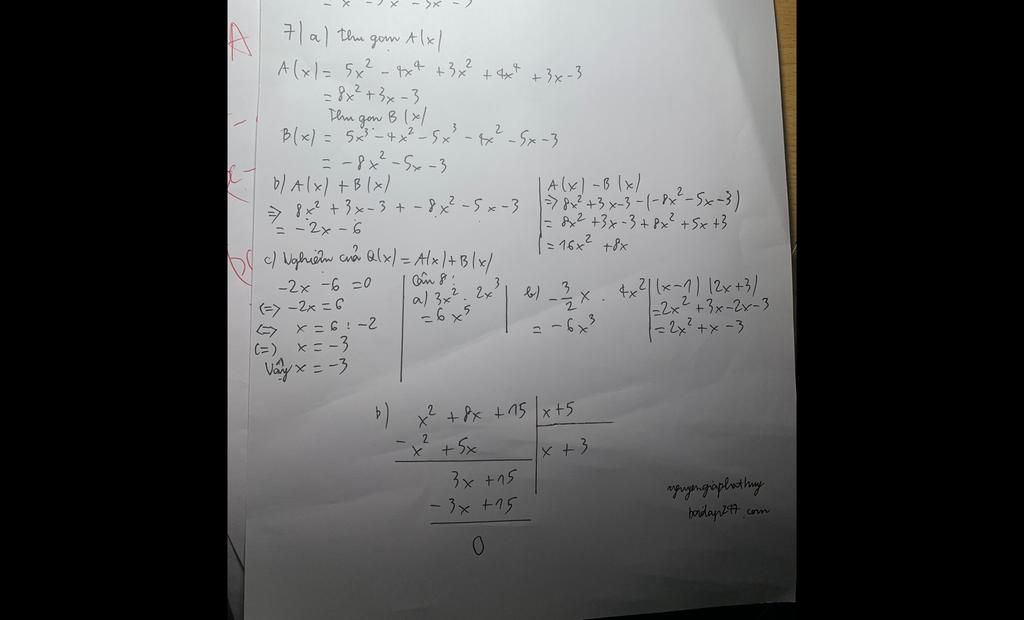 = x - 3x - 3x - 3
7) a) Thu gọn A(x)
A(x) = 5x² - 4x⁴ + 3x² + 4x⁴ + 3x - 3
= 8x² + 3x - 3
Thu gọn B(x)
B(x) = 5x³ - 4x² - 5x³ - 4x² - 5x - 3
= -8x² - 5x - 3
b) A(x) + B(x)
=> 8x² + 3x - 3 + -8x² - 5x - 3
= -2x - 6
A(x) - B(x)
=> 8x² + 3x - 3 - (-8x² - 5x - 3)
= 8x² + 3x - 3 + 8x² + 5x + 3
= 16x² + 8x
c) Nghiệm của Q(x) = A(x) + B(x)
-2x - 6 = 0
(=> -2x = 6
<=> x = 6 : -2
(=) x = -3
Vậy x = -3
Câu 8:
a) 3x² . 2x³
= 6x⁵
b) -3/2 x . 4x²
= -6x³
(x - 1) (2x + 3)
= 2x² + 3x - 2x - 3
= 2x² + x - 3
b) x² + 8x + 15 | x + 5
- x² + 5x | x + 3
3x + 15
- 3x + 15
0
nguyengiaphathuy
hoidap247.com